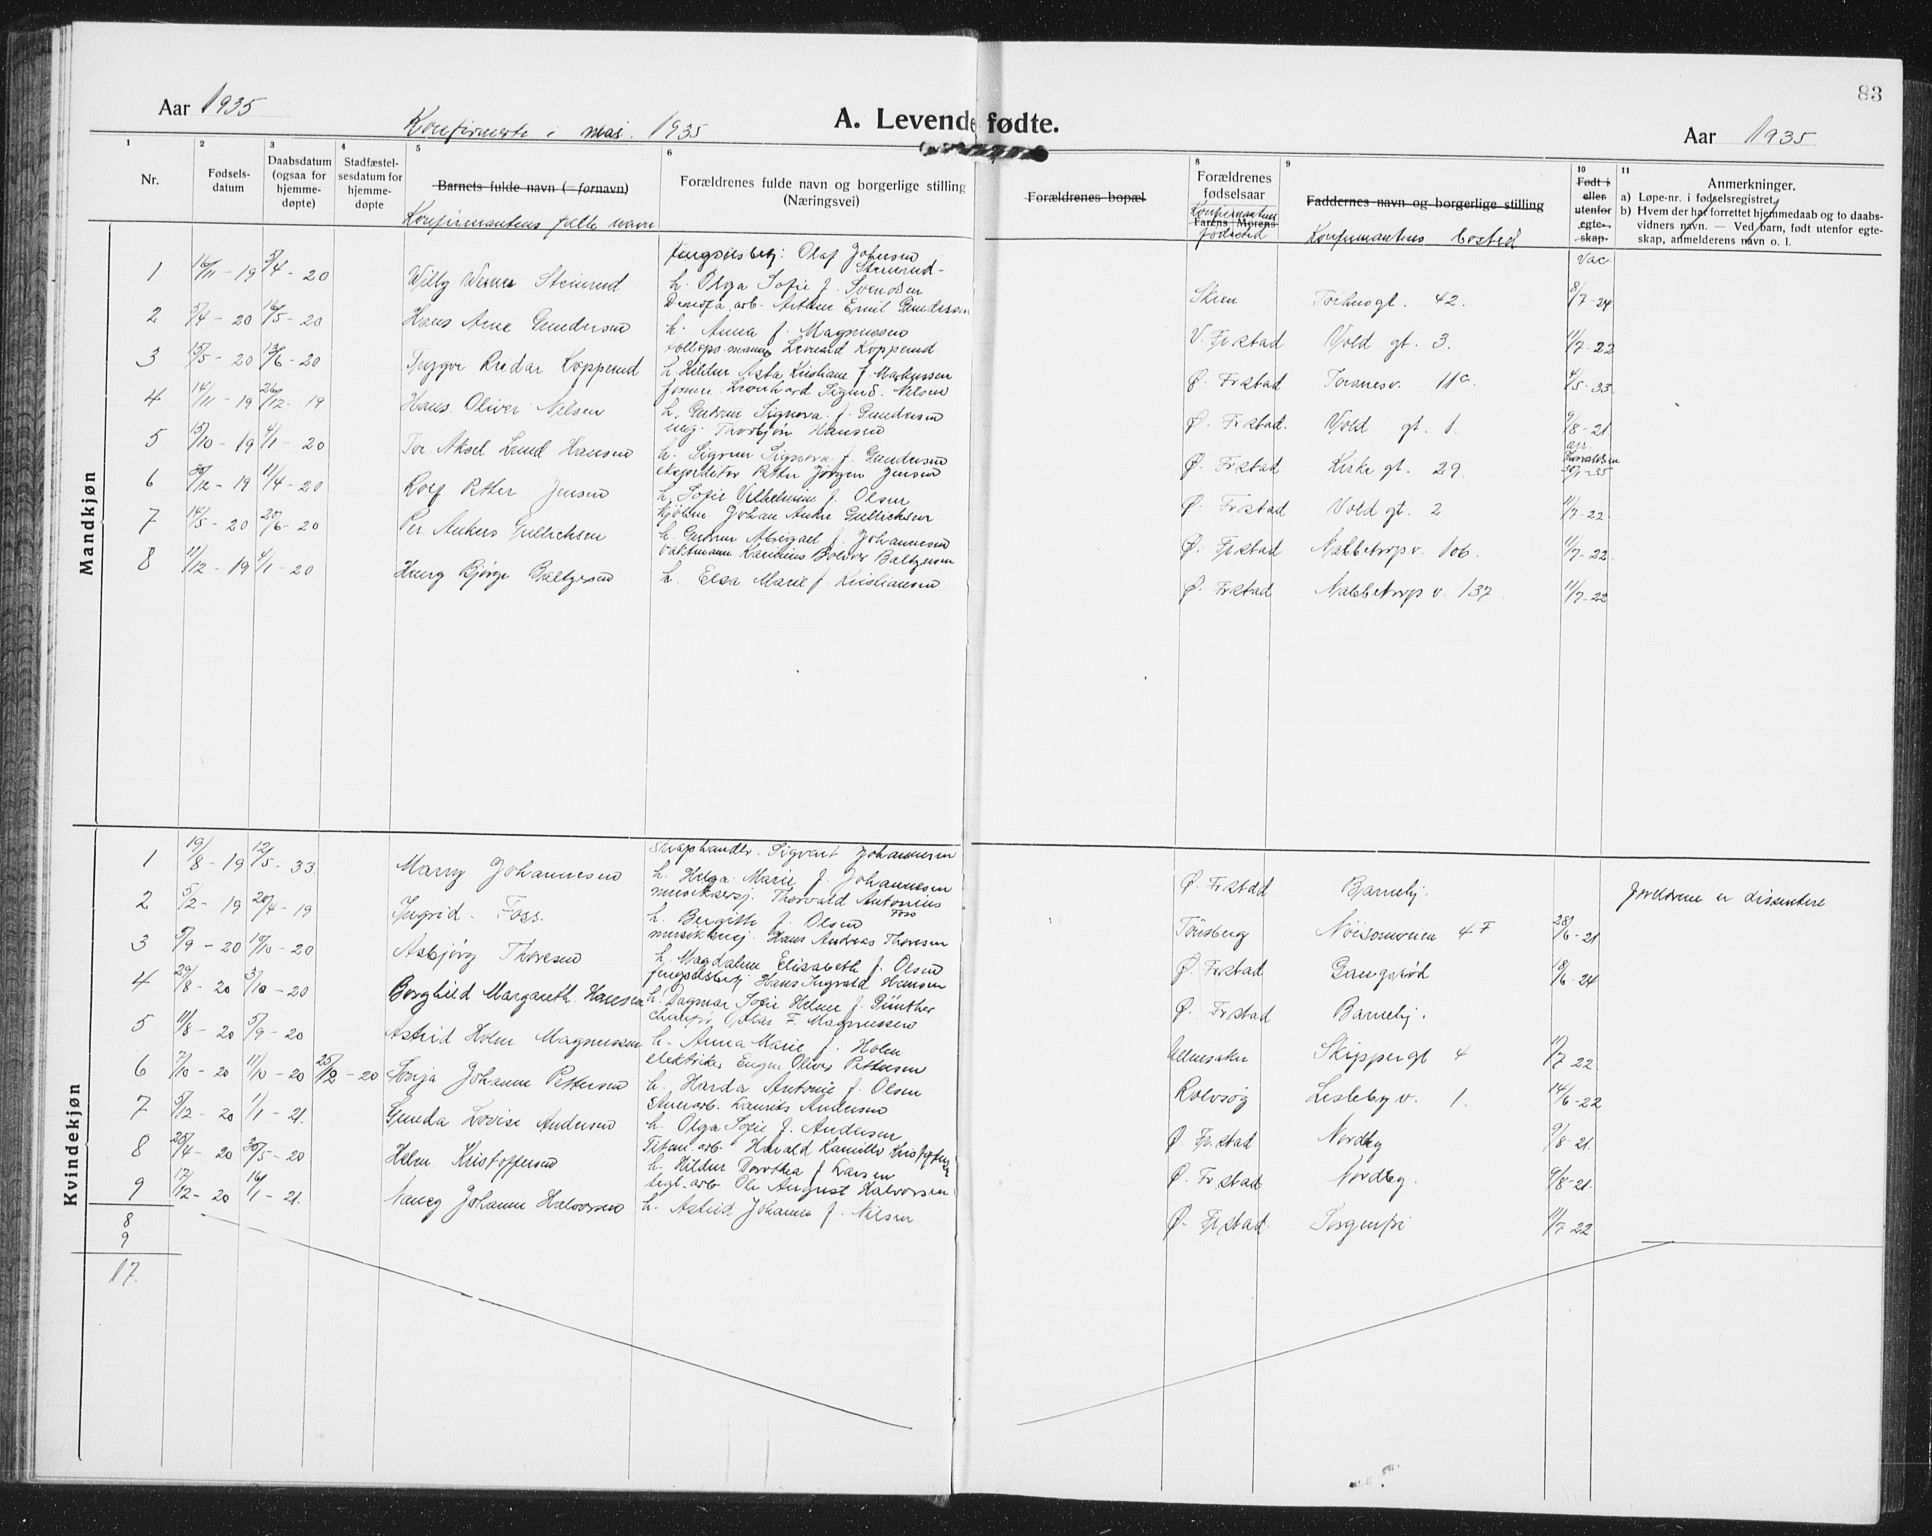 83
Aar 1935
Konfirmerte i mai 1935
A. Levende fødte.
Aar 1935
1 2 3 4 5 6 8 9 10 11
Nr.
Fødsels-
datum
Daabsdatum
(ogsaa for
hjemme-
døpte)
Stadfæstel-
sesdatum for
hjemme-
døpte
Barnets fulde navn (= fornavn)
Konfirmantens fulle navn
Forældrenes fulde navn og borgerlige stilling
(Næringsvei)
Forældrenes bopæl
Forældrenes
fødselsaar
Farens Morens
Konfirmantens
fødested
Faddernes navn og borgerlige stilling
Konfirmantens bosted
Født i
eller
utenfor
egte-
skap.
Vac.
Anmerkninger.
a) Løpe-nr. i fødselsregistret.
b) Hvem der har forrettet hjemmedaab og to daabs-
vidners navn. — Ved barn, født utenfor egte-
skap, anmelderens navn o. l.
Mandkjøn
1 16/11 - 19 5/4 - 20 Willy Steinrud fengselsbetj. Olaf Johansen Steinrud - h. Olga Sofie f. Svendsen Skien 42. 8/7-24
2 5/4 - 20 16/5 - 20 Hans Arne Gundersen arb. Arthur Emil Gundersen h. Anna f. Magnussen V. Fr.stad Vold gt. 3. 11/7-22
3 15/5 - 20 13/6 - 20 Trygve Reidar Kopperud Leonard Kopperud h. Hildur Asta Kristiane f. Markussen Ø. Fr.stad Torsnesv. 11a. 4/5-33
4 14/11 - 19 26/12 - 19 Hans Oliver Nilsen former Leonhard Sigurd Nilsen h. Gudrun Signora f. Gundersen Ø. Fr.stad. Vold gt. 1. 9/8-21
5 15/10 - 19 4/1 - 20 Tor Aksel Lund Hansen Thorbjørn Hansen h. Sigrun Signora f. Gundersen Ø. Fr.stad Kirke gt. 29.
6 30/12 - 19 11/4 - 20 Rolf Petter Jensen ekspeditør Petter Jørgen Jensen h. Sofie Vilhelmine f. Olsen Ø. Fr.stad Vold gt. 2 11/7-22
7 14/5 - 20 20/6 - 20 Per Ankers Gullichsen Johan Anker Gullichsen h. Gudrun Abigael f. Johannesen Ø. Fr.stad Nabbetorpv. 106. 11/7-22
8 11/12 - 19 4/1 - 20 Bjørge Baltzersen vaktmann Baltzersen h. Elsa Marie f. Kristiansen Ø. Fr.stad Nabbetorp v. 137. 11/7-22
Kvindekjøn
1 19/8 - 19 12/5 - 33 Marry Johannesen skraphandler Sigvart Johannesen h. Helga Marie f. Johannesen Ø. Fr.stad Barnehj. foreldrene er dissentere
2 5/2 - 19 20/4 - 19 Ingrid Foss. musikksersj. Thorvald Antonius Foss h. Bergitte f. Olsen Tönsberg 4F 28/6-21
3 9/9 - 20 17/10 - 20 Asbjørg Thoresen musikksersj. Hans Andreas Thoresen h. Magdalene Elisabeth f. Olsen Ø. Fr.stad Gangsrød 18/6-24
4 29/8 - 20 3/10 - 20 Borghild Margareth Hansen fengselsbetj. Hans Ingvald Hansen h. Dagmar Sofie Helene f. Günther Ø. Fr.stad Barnehj.
5 11/8 - 20 5/9 - 20 Astrid Holm Magnussen chauffør Oskar F. Magnussen h. Anna Marie f. Holm Ullensaker Skippergt 4 11/7 22
6 7/10 - 20 11/10 - 20 25/12 - 20 Sonja Johanne Pettersen elektriker Eugen Oliver Pettersen h. Harda Antonie f. Olsen Rolvsøy Lislebyv. 1. 14/6-22
7 5/12 - 20 1/1 - 21. Gunda Lovise Andersen Laurits Andersen h. Olga Sofie f. Andersen Ø. Fr.stad Nordby 9/8-21
8 25/4 - 20 30/5 - 20 Helen Kristoffersen Titan. arb. Harald Kamillo Kristoffersen h. Hildur Dorothea f. Larsen Ø. Fr.stad Nordby. 9/8-21.
9 17/12 - 20 16/1 - 21. Nancy Johanne Halvorsen tegl. arb. Ole August Halvorsen h. Astrid Johanne f. Nilsen Ø. Fr.stad Sorgenfri 11/7 22
8
9
17.